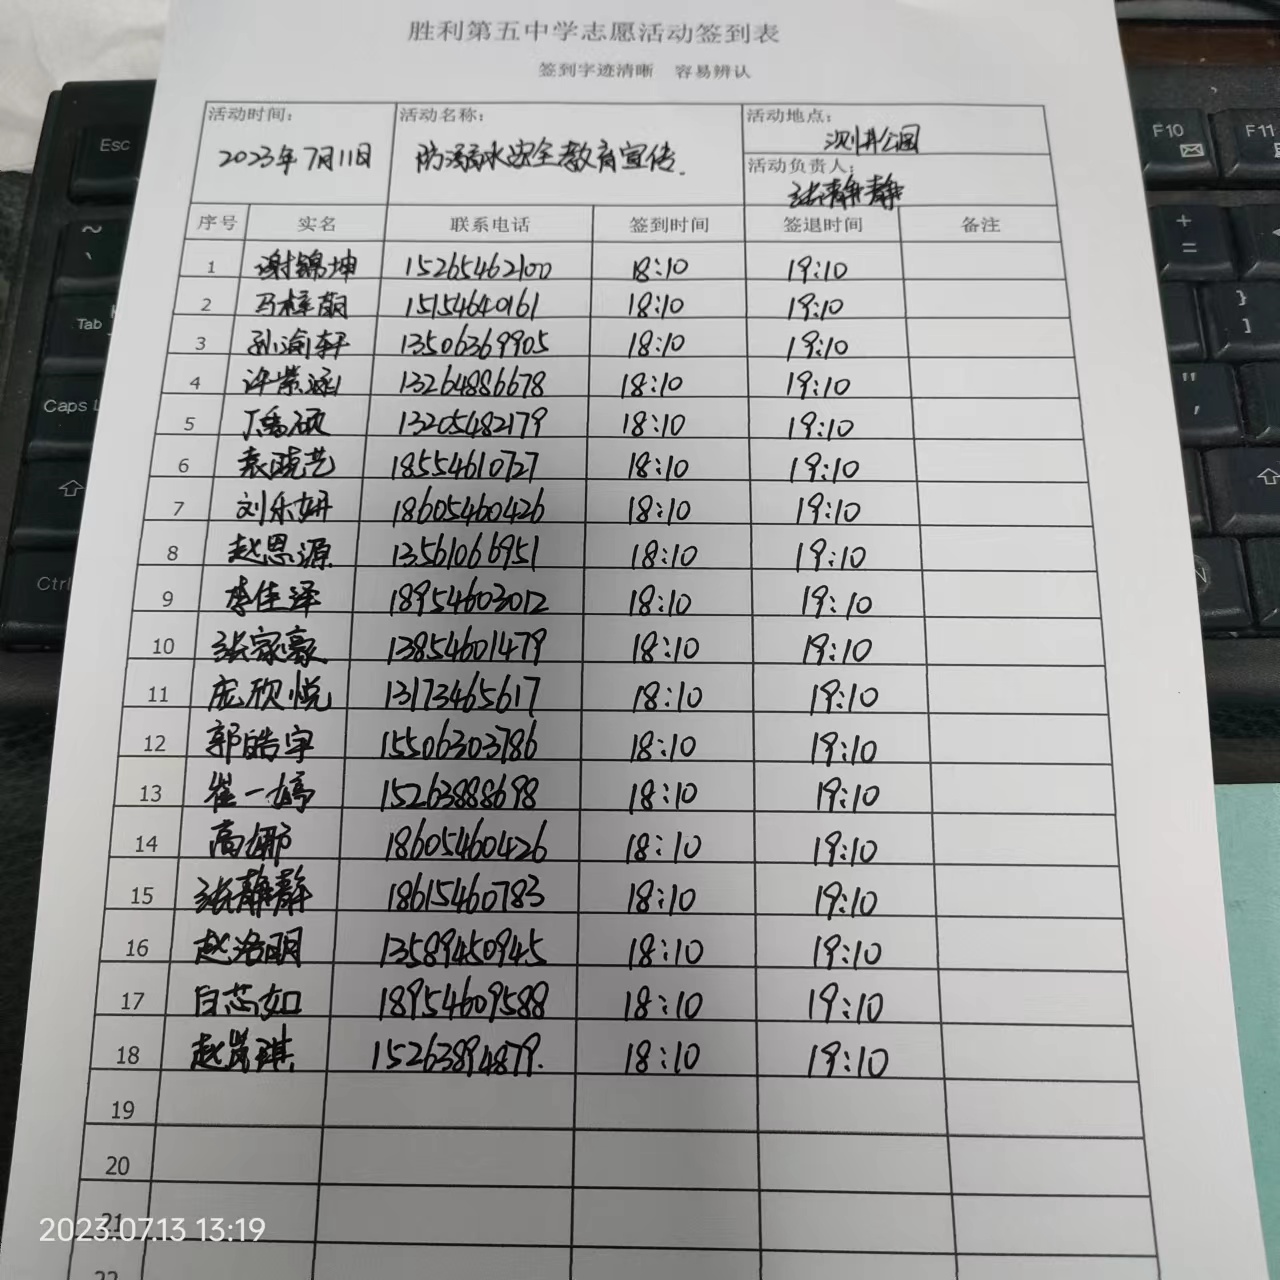 胜利第五中学志愿活动签到表
签到字迹清晰 容易辨认
活动时间: 活动名称: 活动地点:
2023年7月11日 防溺水安全教育宣传. 测井公园
活动负责人:
张静静
序号 实名 联系电话 签到时间 签退时间 备注
1 谢锦坤 15265462100 18:10 19:10
2 马梓萌 15154640161 18:10 19:10
3 孙渝轩 13506369905 18:10 19:10
4 许紫涵 13264886678 18:10 19:10
5 丁禹硕 13205482179 18:10 19:10
6 袁晓艺 18554610727 18:10 19:10
7 刘乐妍 18605460426 18:10 19:10
8 赵恩源 13561066951 18:10 19:10
9 李佳泽 18954603012 18:10 19:10
10 张家豪 13854601479 18:10 19:10
11 庞欣悦 13173465617 18:10 19:10
12 郭皓宇 15506303786 18:10 19:10
13 崔一婷 15263888698 18:10 19:10
14 高娜 18605460426 18:10 19:10
15 张静静 18615460783 18:10 19:10
16 赵浩明 13589450945 18:10 19:10
17 白芯如 18954609588 18:10 19:10
18 赵 琪 15263894879. 18:10 19:10
19
20
21
22
2023.07.13 13:19
Esc
~
`
Tab
Caps L
Ctrl
F10
F11
+
=
}
]
"
'